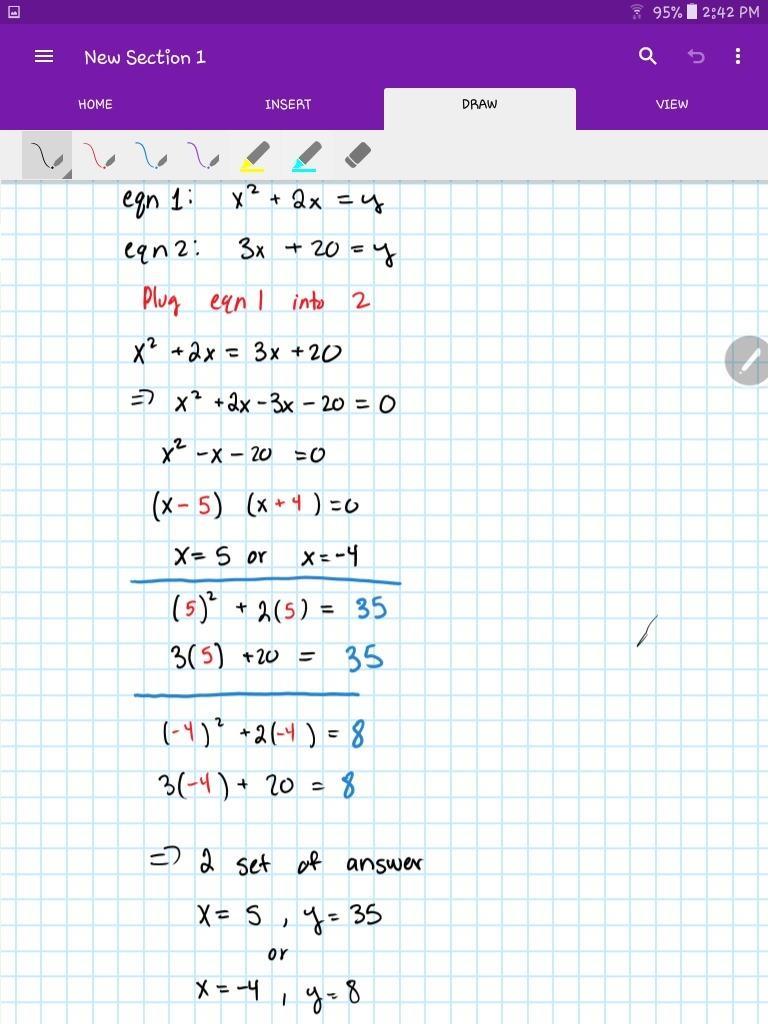 95% 2:42 PM
New Section 1
HOME INSERT DRAW VIEW
eqn 1: x² + 2x = y
eqn 2: 3x + 20 = y
Plug eqn 1 into 2
x² + 2x = 3x + 20
=> x² + 2x - 3x - 20 = 0
x² - x - 20 = 0
(x - 5) (x + 4) = 0
x = 5 or x = -4
(5)² + 2(5) = 35
3(5) + 20 = 35
(-4)² + 2(-4) = 8
3(-4) + 20 = 8
=> 2 set of answer
x = 5 , y = 35
or
x = -4 , y = 8